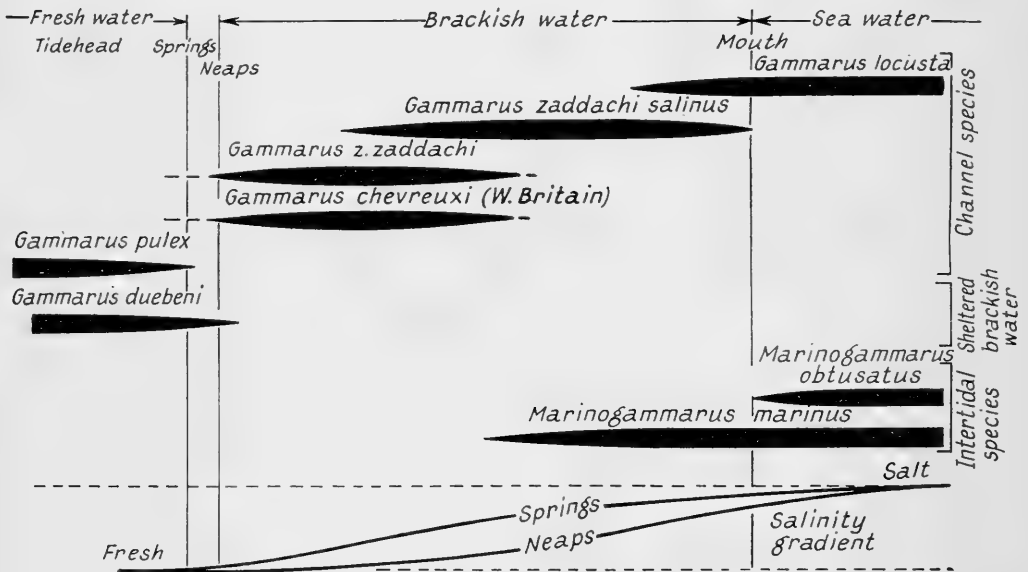 Fresh water
Brackish water
Sea water
Tidehead
Springs
Neaps
Mouth
Gammarus locusta
Gammarus zaddachi salinus
Gammarus z. zaddachi
Gammarus chevreuxi (W. Britain)
Gammarus pulex
Gammarus duebeni
Marinogammarus
obtusatus
Marinogammarus marinus
Channel species
Sheltered
brackish
water
Intertidal
species
Salt
Springs
Neaps
Fresh
Salinity
gradient